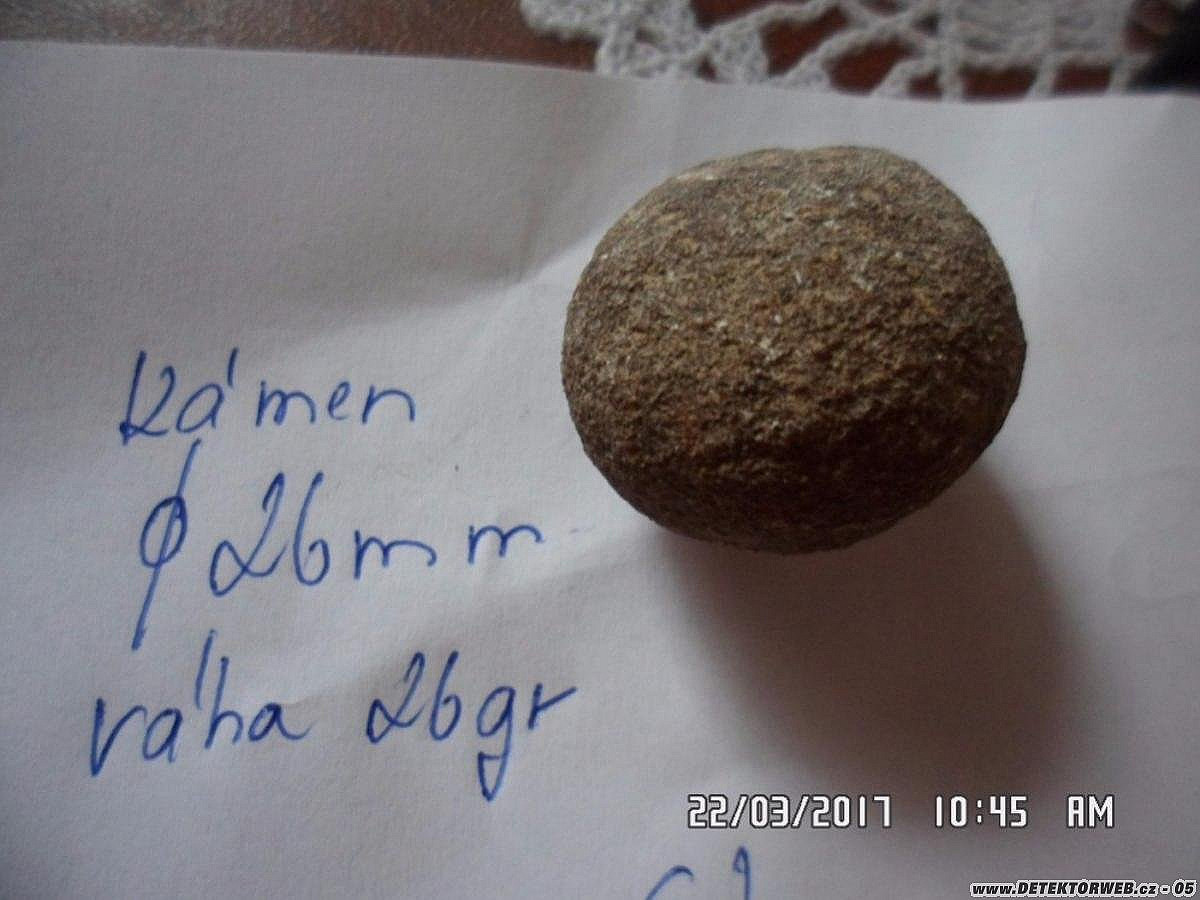 kámen
⌀ 26mm
váha 26gr
22/03/2017 10:45 AM
www.DETEKTORWEB.cz - 05